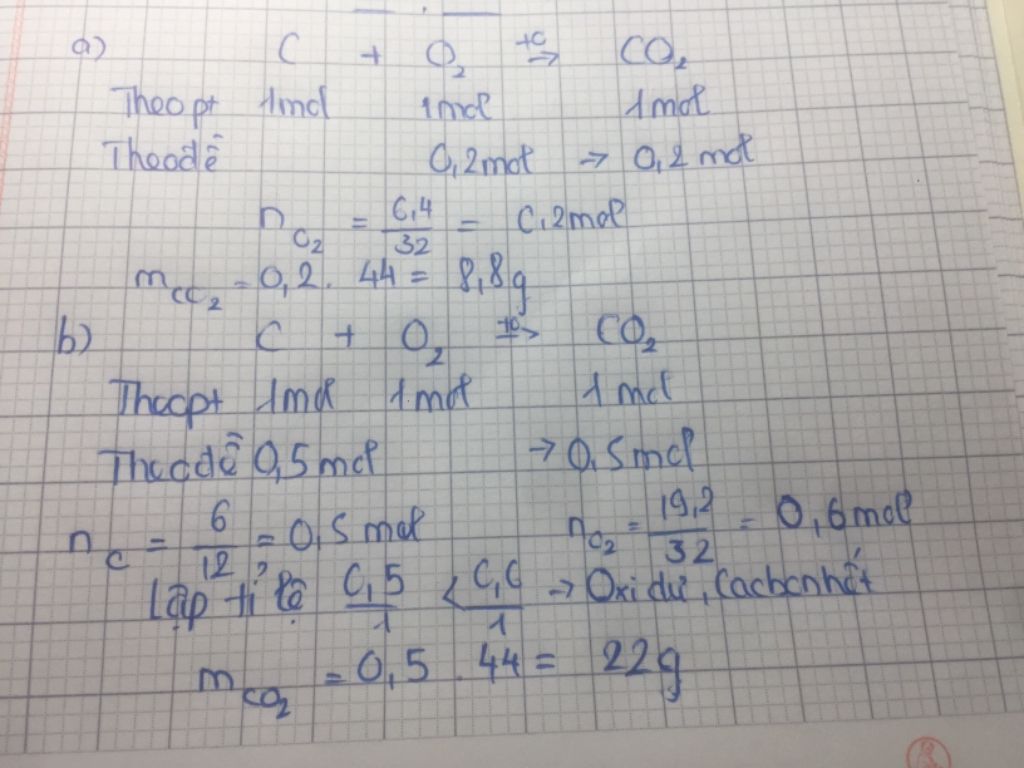 a) C + O₂ →(t°) CO₂
Theo pt 1mol 1mol 1mol
Theo đề 0,2mol → 0,2mol
n O₂ = 6,4/32 = 0,2mol
m CO₂ = 0,2. 44 = 8,8g
b) C + O₂ →(t°) CO₂
Theo pt 1mol 1mol 1mol
Theo đề 0,5mol → 0,5mol
n C = 6/12 = 0,5mol n O₂ = 19,2/32 = 0,6mol
Lập tỉ lệ 0,5/1 < 0,6/1 → Oxi dư, Cacbon hết
m CO₂ = 0,5 . 44 = 22g